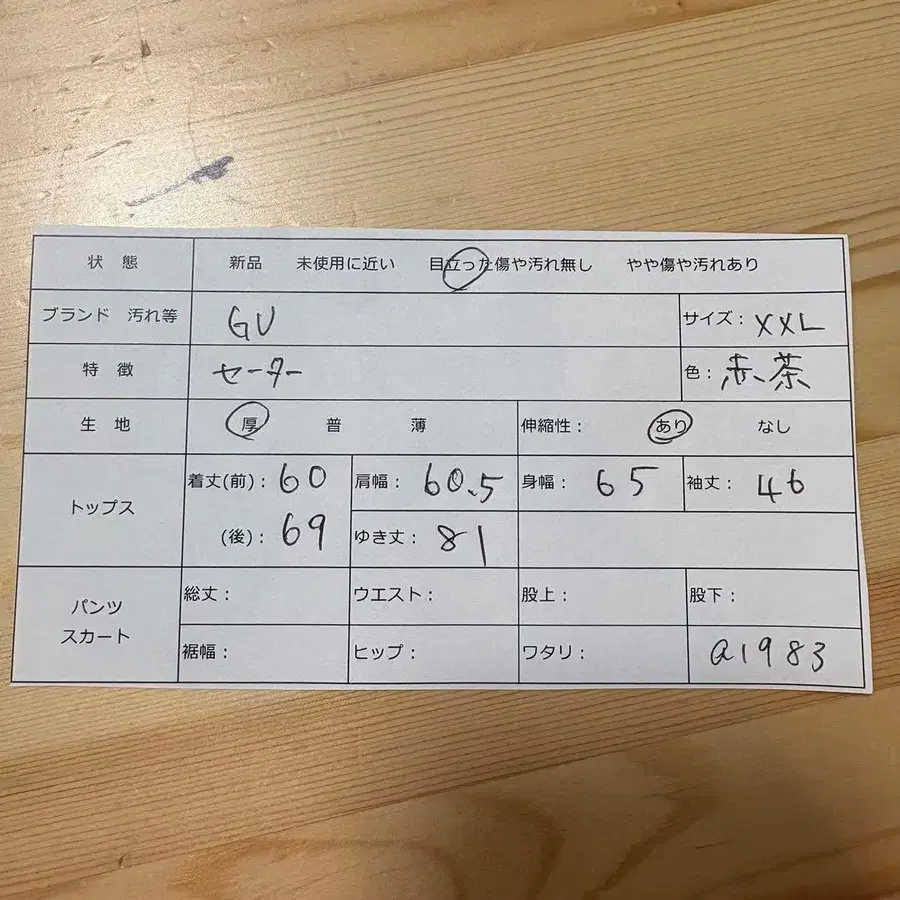 状 態 新品 未使用に近い 目立った傷や汚れ無し やや傷や汚れあり
ブランド 汚れ等 GU サイズ： XXL
特 徴 セーター 色： 赤茶
生 地 厚 普 薄 伸縮性： あり なし
トップス 着丈(前)： 60 肩幅： 60.5 身幅： 65 袖丈： 46
(後)： 69 ゆき丈： 81
パンツ スカート 総丈： ウエスト： 股上： 股下：
裾幅： ヒップ： ワタリ： a1983